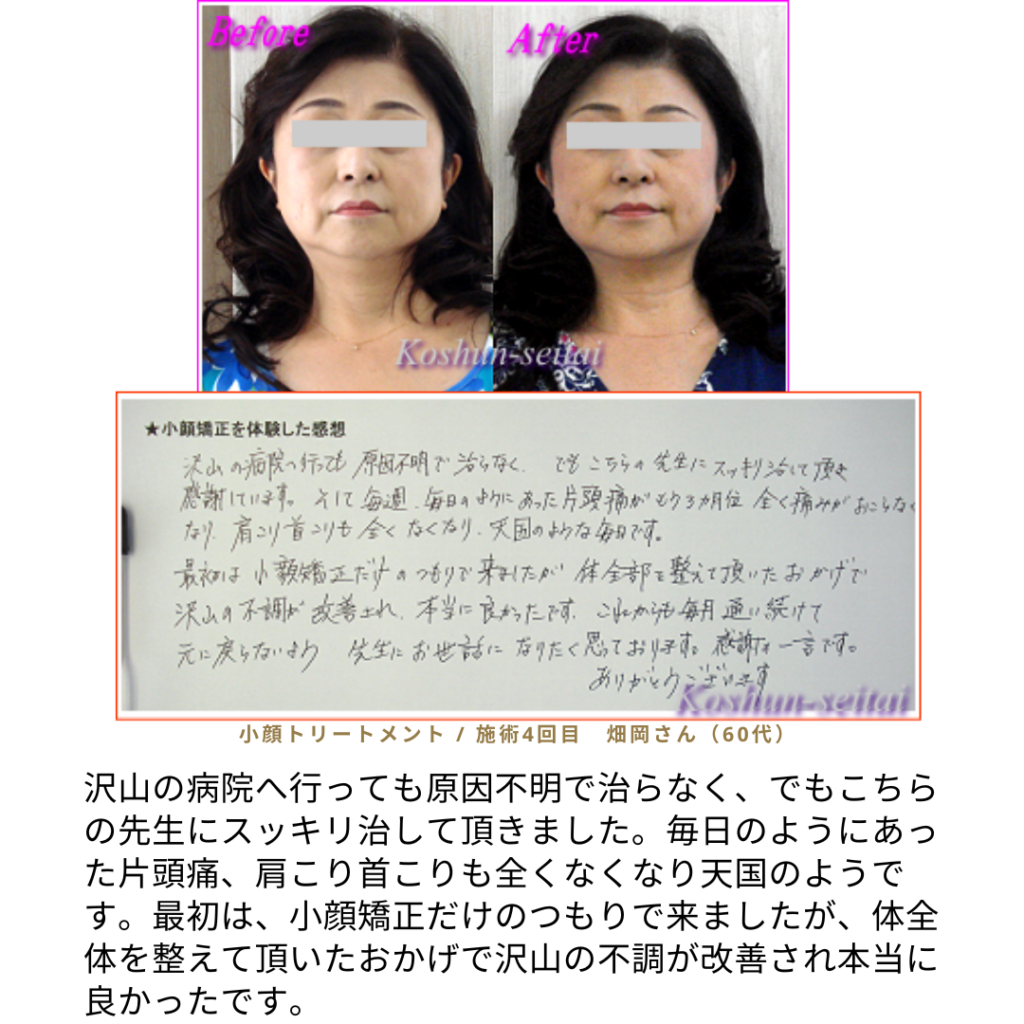 Before After
Koshun-seitai
★小顔矯正を体験した感想
沢山の病院へ行っても 原因不明で治らなく、でもこちらの先生にスッキリ治して頂き
感謝しています。そして毎週、毎日のようにあった片頭痛がもう3ヵ月位 全く痛みがおこらなく
なり、肩こり首こりも全くなくなり、天国のような毎日です。
最初は小顔矯正だけのつもりで来ましたが 体全部を整えて頂いたおかげで
沢山の不調が改善され、本当に良かったです。これからも毎月通い続けて
元に戻らないよう 先生にお世話になりたく思っております。感謝の一言です。
ありがとうございます
Koshun-seitai
小顔トリートメント / 施術4回目 畑岡さん（60代）
沢山の病院へ行っても原因不明で治らなく、でもこちら
の先生にスッキリ治して頂きました。毎日のようにあっ
た片頭痛、肩こり首こりも全くなくなり天国のようで
す。最初は、小顔矯正だけのつもりで来ましたが、体全
体を整えて頂いたおかげで沢山の不調が改善され本当に
良かったです。